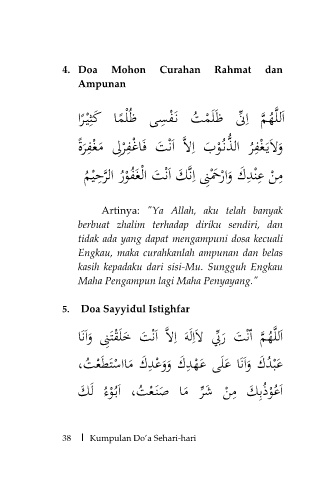 4. Doa Mohon Curahan Rahmat dan
Ampunan
اَللَّهُمَّ اِنِّى ظَلَمْتُ نَفْسِى ظُلْمًا كَثِيْرًا
وَلاَيَغْفِرُ الذُّنُوْبَ اِلاَّ اَنْتَ فَاغْفِرْلِى مَغْفِرَةً
مِنْ عِنْدِكَ وَارْحَمْنِى اِنَّكَ اَنْتَ الْغَفُوْرُ الرَّحِيْمُ
Artinya: "Ya Allah, aku telah banyak
berbuat zhalim terhadap diriku sendiri, dan
tidak ada yang dapat mengampuni dosa kecuali
Engkau, maka curahkanlah ampunan dan belas
kasih kepadaku dari sisi-Mu. Sungguh Engkau
Maha Pengampun lagi Maha Penyayang."
5. Doa Sayyidul Istighfar
اَللَّهُمَّ اَنْتَ رَبِّي لاَاِلَهَ اِلاَّ اَنْتَ خَلَقْتَنِى وَاَنَا
عَبْدُكَ وَاَنَا عَلَى عَهْدِكَ وَوَعْدِكَ مَااسْتَطَعْتُ،
اَعُوْذُبِكَ مِنْ شَرِّ مَا صَنَعْتُ، اَبُوْءُ لَكَ
38 | Kumpulan Do'a Sehari-hari